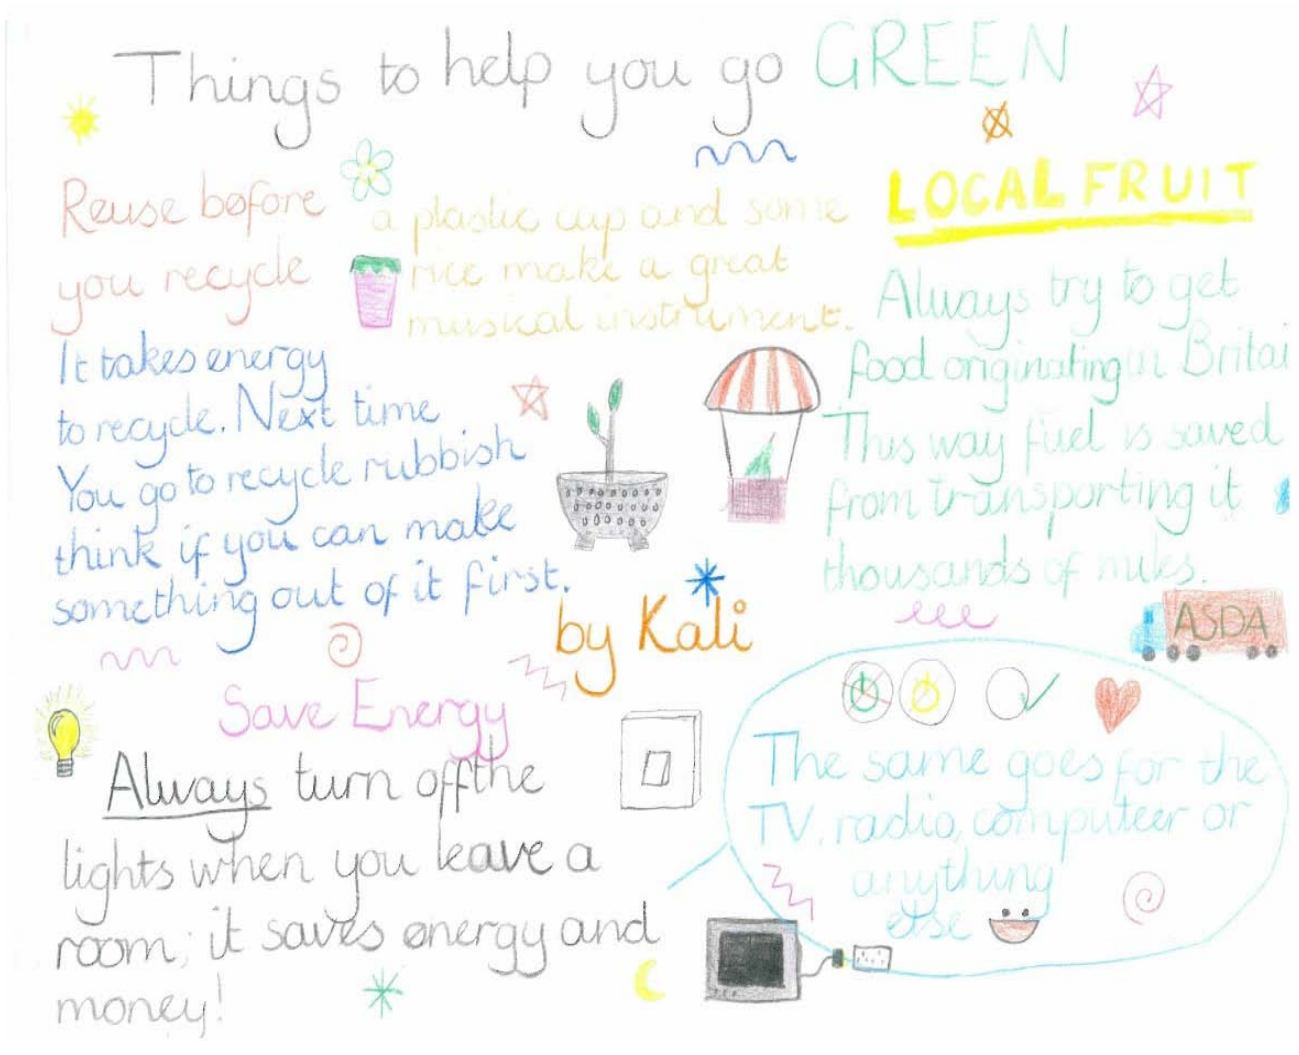 Things to help you go GREEN
Reuse before
you recycle
a plastic cup and some
rice make a great
musical instrument.
It takes energy
to recycle. Next time
You go to recycle rubbish
think if you can make
something out of it first.
LOCAL FRUIT
Always try to get
food originating in Britai
This way fuel is saved
from transporting it
thousands of miles.
ASDA
by Kali
Save Energy
Always turn off the
lights when you leave a
room; it saves energy and
money!
The same goes for the
TV, radio, computeer or
anything
else